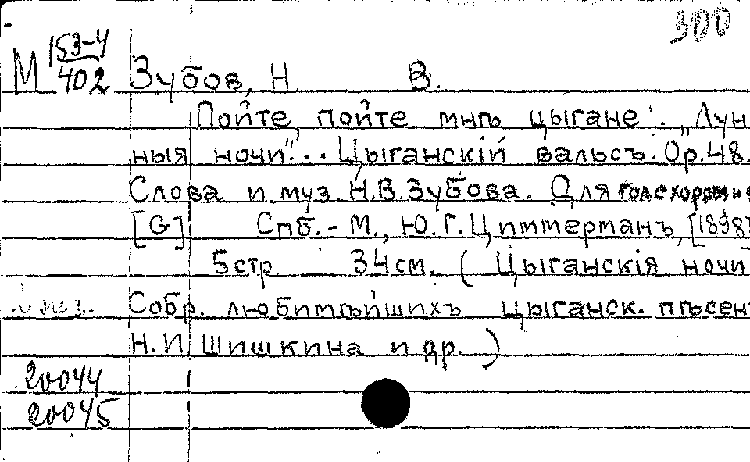 300
М 153-4/402 Зубов, Н В.
Пойте, пойте мнѣ цыгане! "Лун-
ныя ночи"... Цыганскій вальсъ. Op. 48.
Слова и муз. Н.В. Зубова. Для голоса хором и ф
[G] Спб. - М., Ю. Г. Циммерманъ, [1898]
5 стр 34 см. (Цыганскія ночи
Собр. любимѣйшихъ цыганск. пѣсен
Н.И Шишкина и др.)
20044
20045